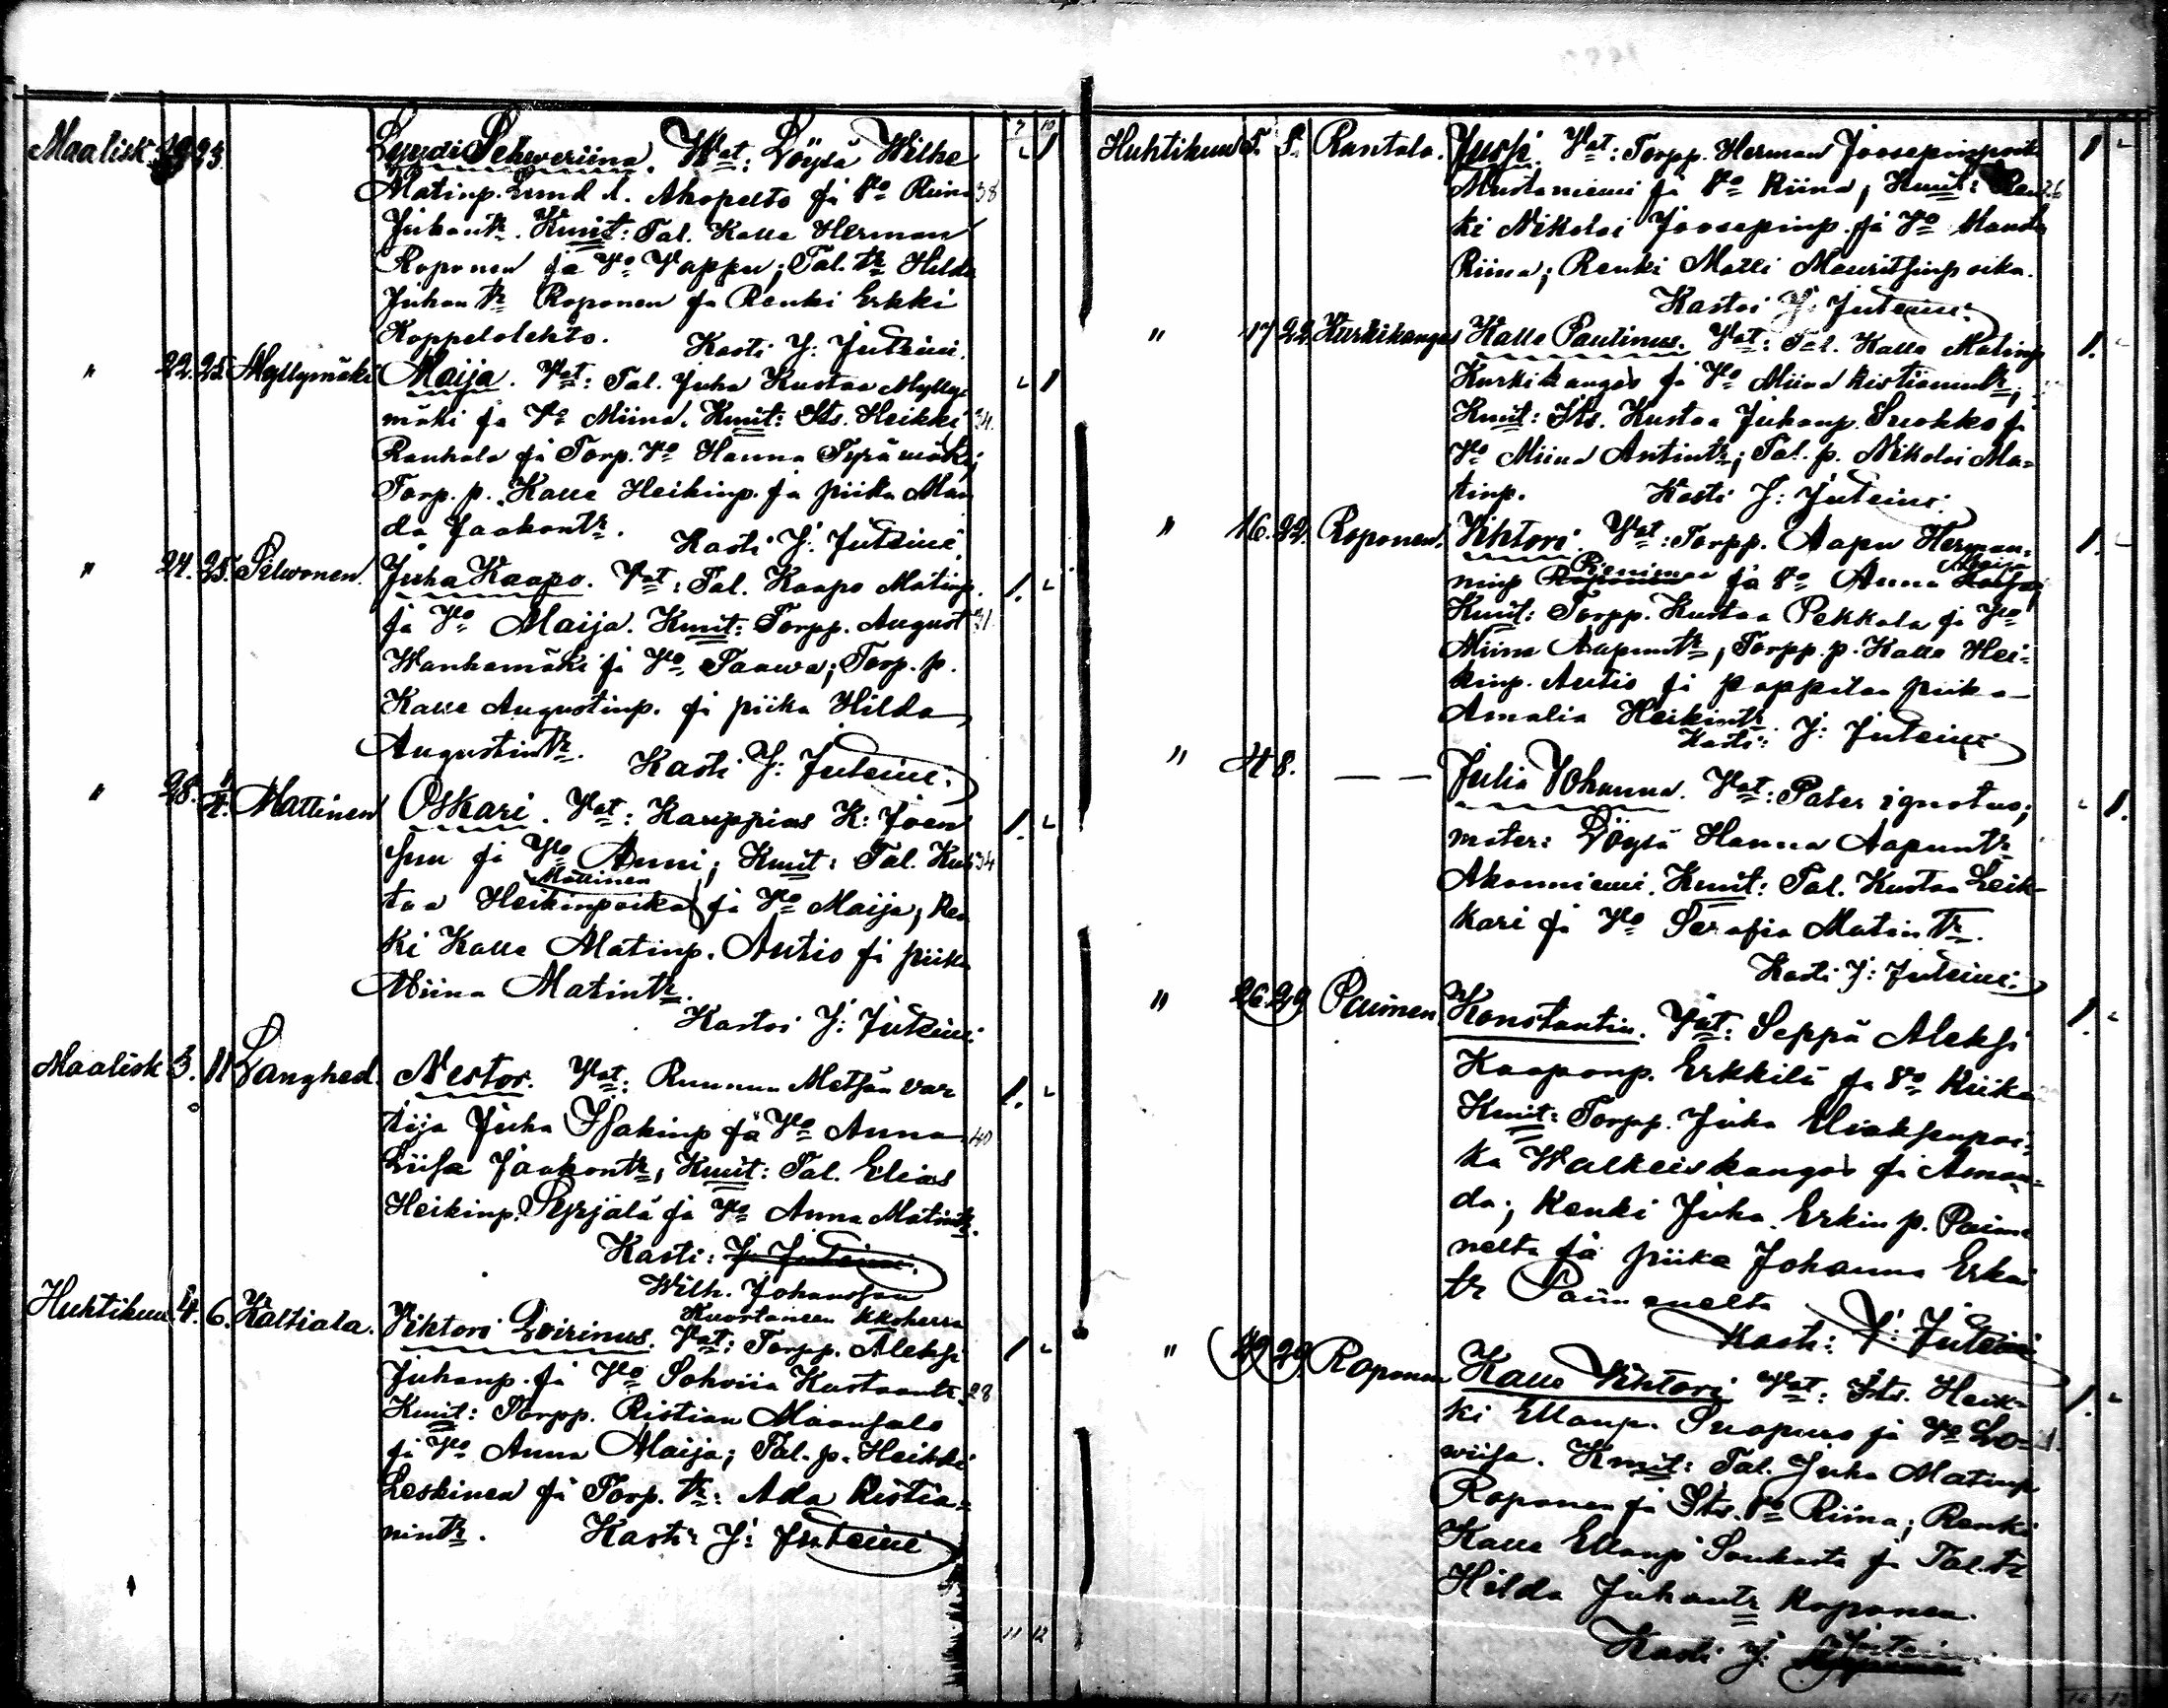 7 10
Maalisk 19. 23. Lyydi Seweriina. Wat: Löysä Wilhe
Matinp. Lund l. Ahopelto ja Vo Riina 38
Juhantr. Kmit: Tal. Kalle Herman
Roponen ja Vo Vappu; Tal. tr Hilda
Juhantr Roponen ja Renki Erkki
Koppelolehto. Kasti J: Juteini.
" 22. 25. Myllymäki Maija. Vat: Tal. Juha Kustaa Mylly-
mäki ja Vo Miina. Kmit: Its. Heikki 34.
Rauhala ja Torp. Vo Hanna Tyrämäki;
Torp. p. Kalle Heikinp. ja piika Man
da Jaakontr. Kasti J: Juteini.
" 24. 25. Pelwonen. Juha Kaapo. Vat: Tal. Kaapo Matinp. 1.
ja Vo Maija. Kmit: Torpp. August 31.
Wanhamäki ja Vo Taawa; Torp. p.
Kalle Augustinp. ja piika Hilda
Augustintr. Kasti J: Juteini.
" 28. 1/4. Mattinen Oskari. Vat: Kauppias K: Joen 1.
suu ja Vo Anni; Kmit: Tal. Kus 34
Mattinen
taa Heikinpoika ja Vo Maija; Ren
ki Kalle Matinp. Autio ja piika
Miina Matintr.
Kastoi J: Juteini.
Maalisk 3. 11 Langhed. Nestor. Vat: Ruunun Metsän var 1.
tija Juha Isakinp ja Vo Anna 40
Liisa Jaakontr, Kmit: Tal. Elias
Heikinp. Syrjälä ja Vo Anna Matintr.
Kasti: J: Juteini.
Wilh. Johansson
Kuortaneen kkoherra
Huhtikuu 4. 6. Kaltiala. Vihtori Kvirinus. Vat: Torpp. Aleksi 1
Juhanp. ja Vo Sohviia Kustaantr. 28
Kmit: Torpp. Ristian Maansalo
ja Vo Anna Maija; Tal. p. Heikki
Leskinen ja Torp. tr: Ada Ristia-
nintr. Kasti J: Juteini
11 12
Huhtikuu 5. 8. Rantala. Jussi. Vat: Torpp. Herman Joosepinpoika 1
Mustaniemi ja Vo Riina; Kmit: Ren 26
ki Nikolai Joosepinp. ja Vo Manda
Riina; Renki Matti Mauritsinpoika.
Kastoi J: Juteini.
" 17 22 Kurkikangas Kalle Paulinus. Vat: Tal. Kalle Matinp 1.
Kurkikangas ja Vo Miina Kistianintr;
Kmit: Its. Kustaa Juhanp. Suokko ja
Vo Miina Antintr; Tal. p. Nikolai Ma-
tinp. Kasti J: Juteini.
" 16. 22. Roponen. Vihtori. Vat: Torpp. Aapu Herman- 1.
Pieniman Maija
ninp Roponen ja Vo Anna Kaisa;
Kmit: Torpp. Kustaa Pekkala ja Vo
Miina Aapuntr, Torpp. p. Kalle Hei-
kinp. Autio ja pappilan piika
Amalia Heikintr.
Kasti: J: Juteini
" 4 8. — — Julia Johanna. Vat: Pater ignotus; 1.
mater: Löysä Hanna Aapuntr
Akonniemi. Kmit: Tal. Kustaa Leik-
kari ja Vo Serafia Matintr.
Kasti J: Juteini.
" 26. 29. Paimen. Konstantin. Vat: Seppä Aleksi 1.
Kaaponp. Erkkilä ja Vo Kiika
Kmit: Torpp. Juha Eliaksenpoi-
ka Walkeiskangas ja Aman-
da; Renki Juha Erkin p. Paime
nelta ja piika Johanna Erkin
tr Paimenelta
Kasti: J: Juteini
" 29. 29. Roponen Kalle Vihtori Vat: Its. Heik- 1.
ki Ellanp. Suapuro ja Vo Lo-
wiisa. Kmit: Tal. Juha Matinp
Roponen ja Its. Vo Riina; Renki
Kalle Ellanp Soukasta ja Tal. tr
Hilda Juhantr Roponen.
Kasti J: Juteini